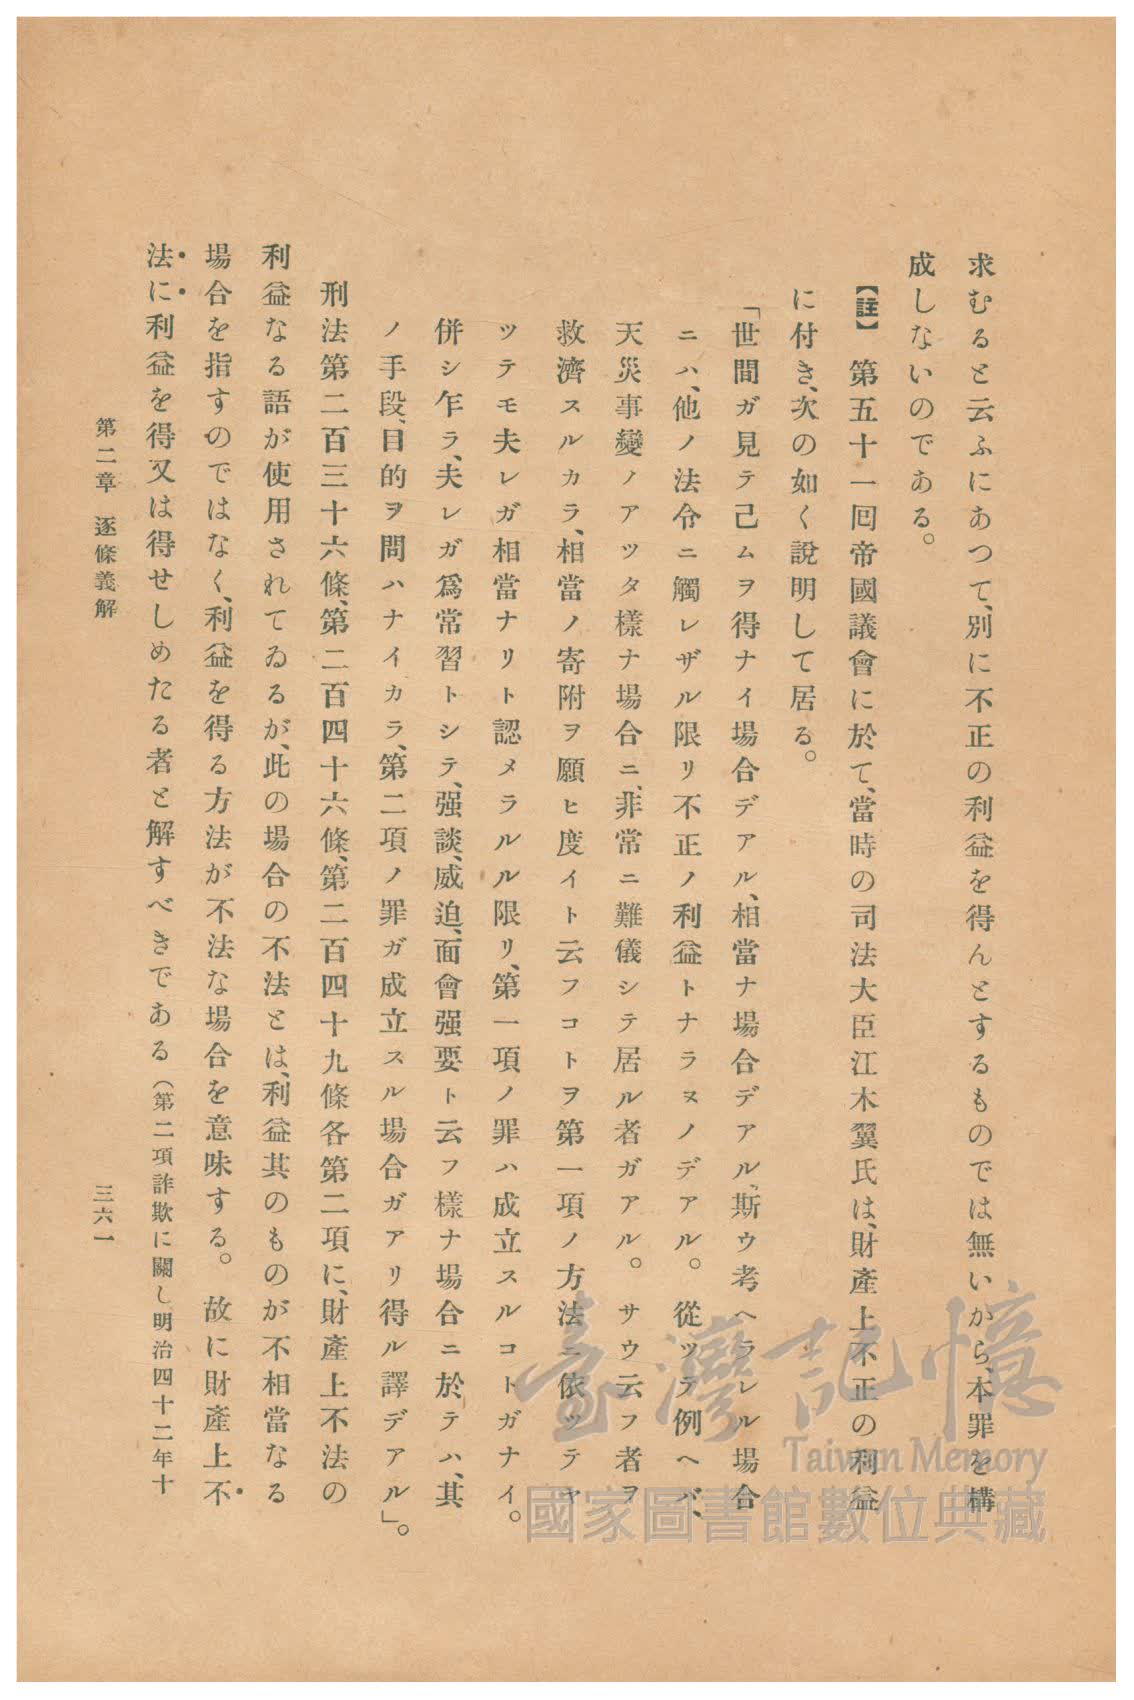 求むると云ふにあつて、別に不正の利益を得んとするものでは無いから、本罪を構
成しないのである。
【註】 第五十一囘帝國議會に於て、當時の司法大臣江木翼氏は、財產上不正の利益
に付き、次の如く說明して居る。
「世間ガ見テ己ムヲ得ナイ場合デアル、相當ナ場合デアル、斯ウ考ヘラレル場合
ニハ、他ノ法令ニ觸レザル限リ不正ノ利益トナラヌノデアル。從ツテ例ヘバ、
天災事變ノアツタ樣ナ場合ニ、非常ニ難儀シテ居ル者ガアル。サウ云フ者ヲ
救濟スルカラ、相當ノ寄附ヲ願ヒ度イト云フコトヲ第一項ノ方法ニ依ツテヤ
ツテモ夫レガ相當ナリト認メラルル限リ、第一項ノ罪ハ成立スルコトガナイ。
併シ乍ラ、夫レガ爲常習トシテ、强談、威迫、面會强要ト云フ樣ナ場合ニ於テハ、其
ノ手段、目的ヲ問ハナイカラ、第二項ノ罪ガ成立スル場合ガアリ得ル譯デアル」。
刑法第二百三十六條、第二百四十六條、第二百四十九條各第二項に、財產上不法の
利益なる語が使用されてゐるが、此の場合の不法とは、利益其のものが不相當なる
場合を指すのではなく、利益を得る方法が不法な場合を意味する。故に財產上不
法に利益を得又は得せしめたる者と解すべきである(第二項詐欺に關し明治四十二年十
第二章 逐條義解
三六一
臺灣記憶
Taiwan Memory
國家圖書館數位典藏